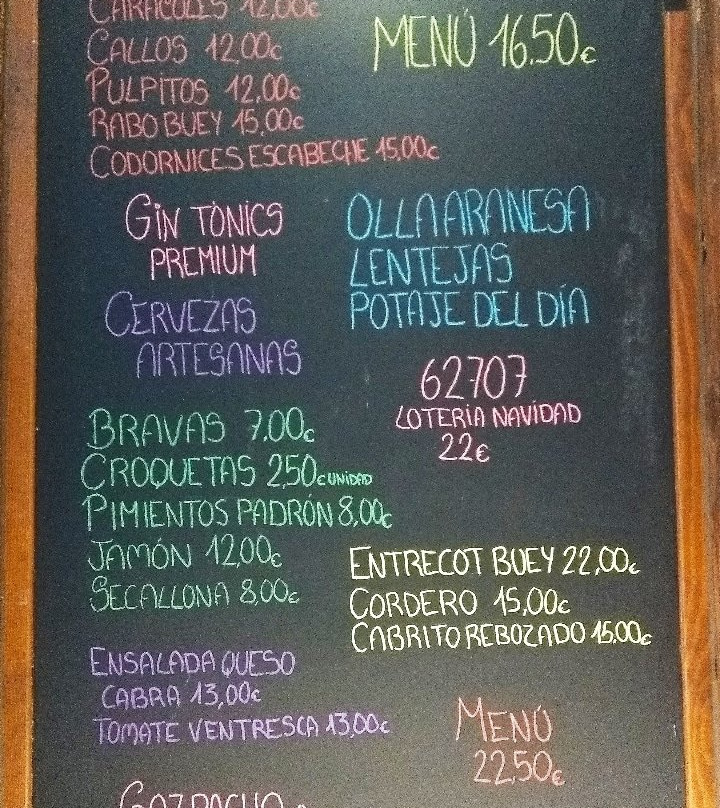 CARACOLES 12,00€
CALLOS 12,00€
PULPITOS 12,00€
RABO BUEY 15,00€
CODORNICES ESCABECHE 15,00€
GIN TÒNICS
PREMIUM
CERVEZAS
ARTESANAS
BRAVAS 7,00€
CROQUETAS 2,50€ UNIDAD
PIMIENTOS PADRÓN 8,00€
JAMÓN 12,00€
SECALLONA 8,00€
ENSALADA QUESO
CABRA 13,00€
TOMATE VENTRESCA 13,00€
GAZPACHO
MENÚ 16,50€
OLLA ARANESA
LENTEJAS
POTAJE DEL DÍA
62707
LOTERÍA NAVIDAD
22€
ENTRECOT BUEY 22,00€
CORDERO 15,00€
CABRITO REBOZADO 15,00€
MENÚ
22,50€